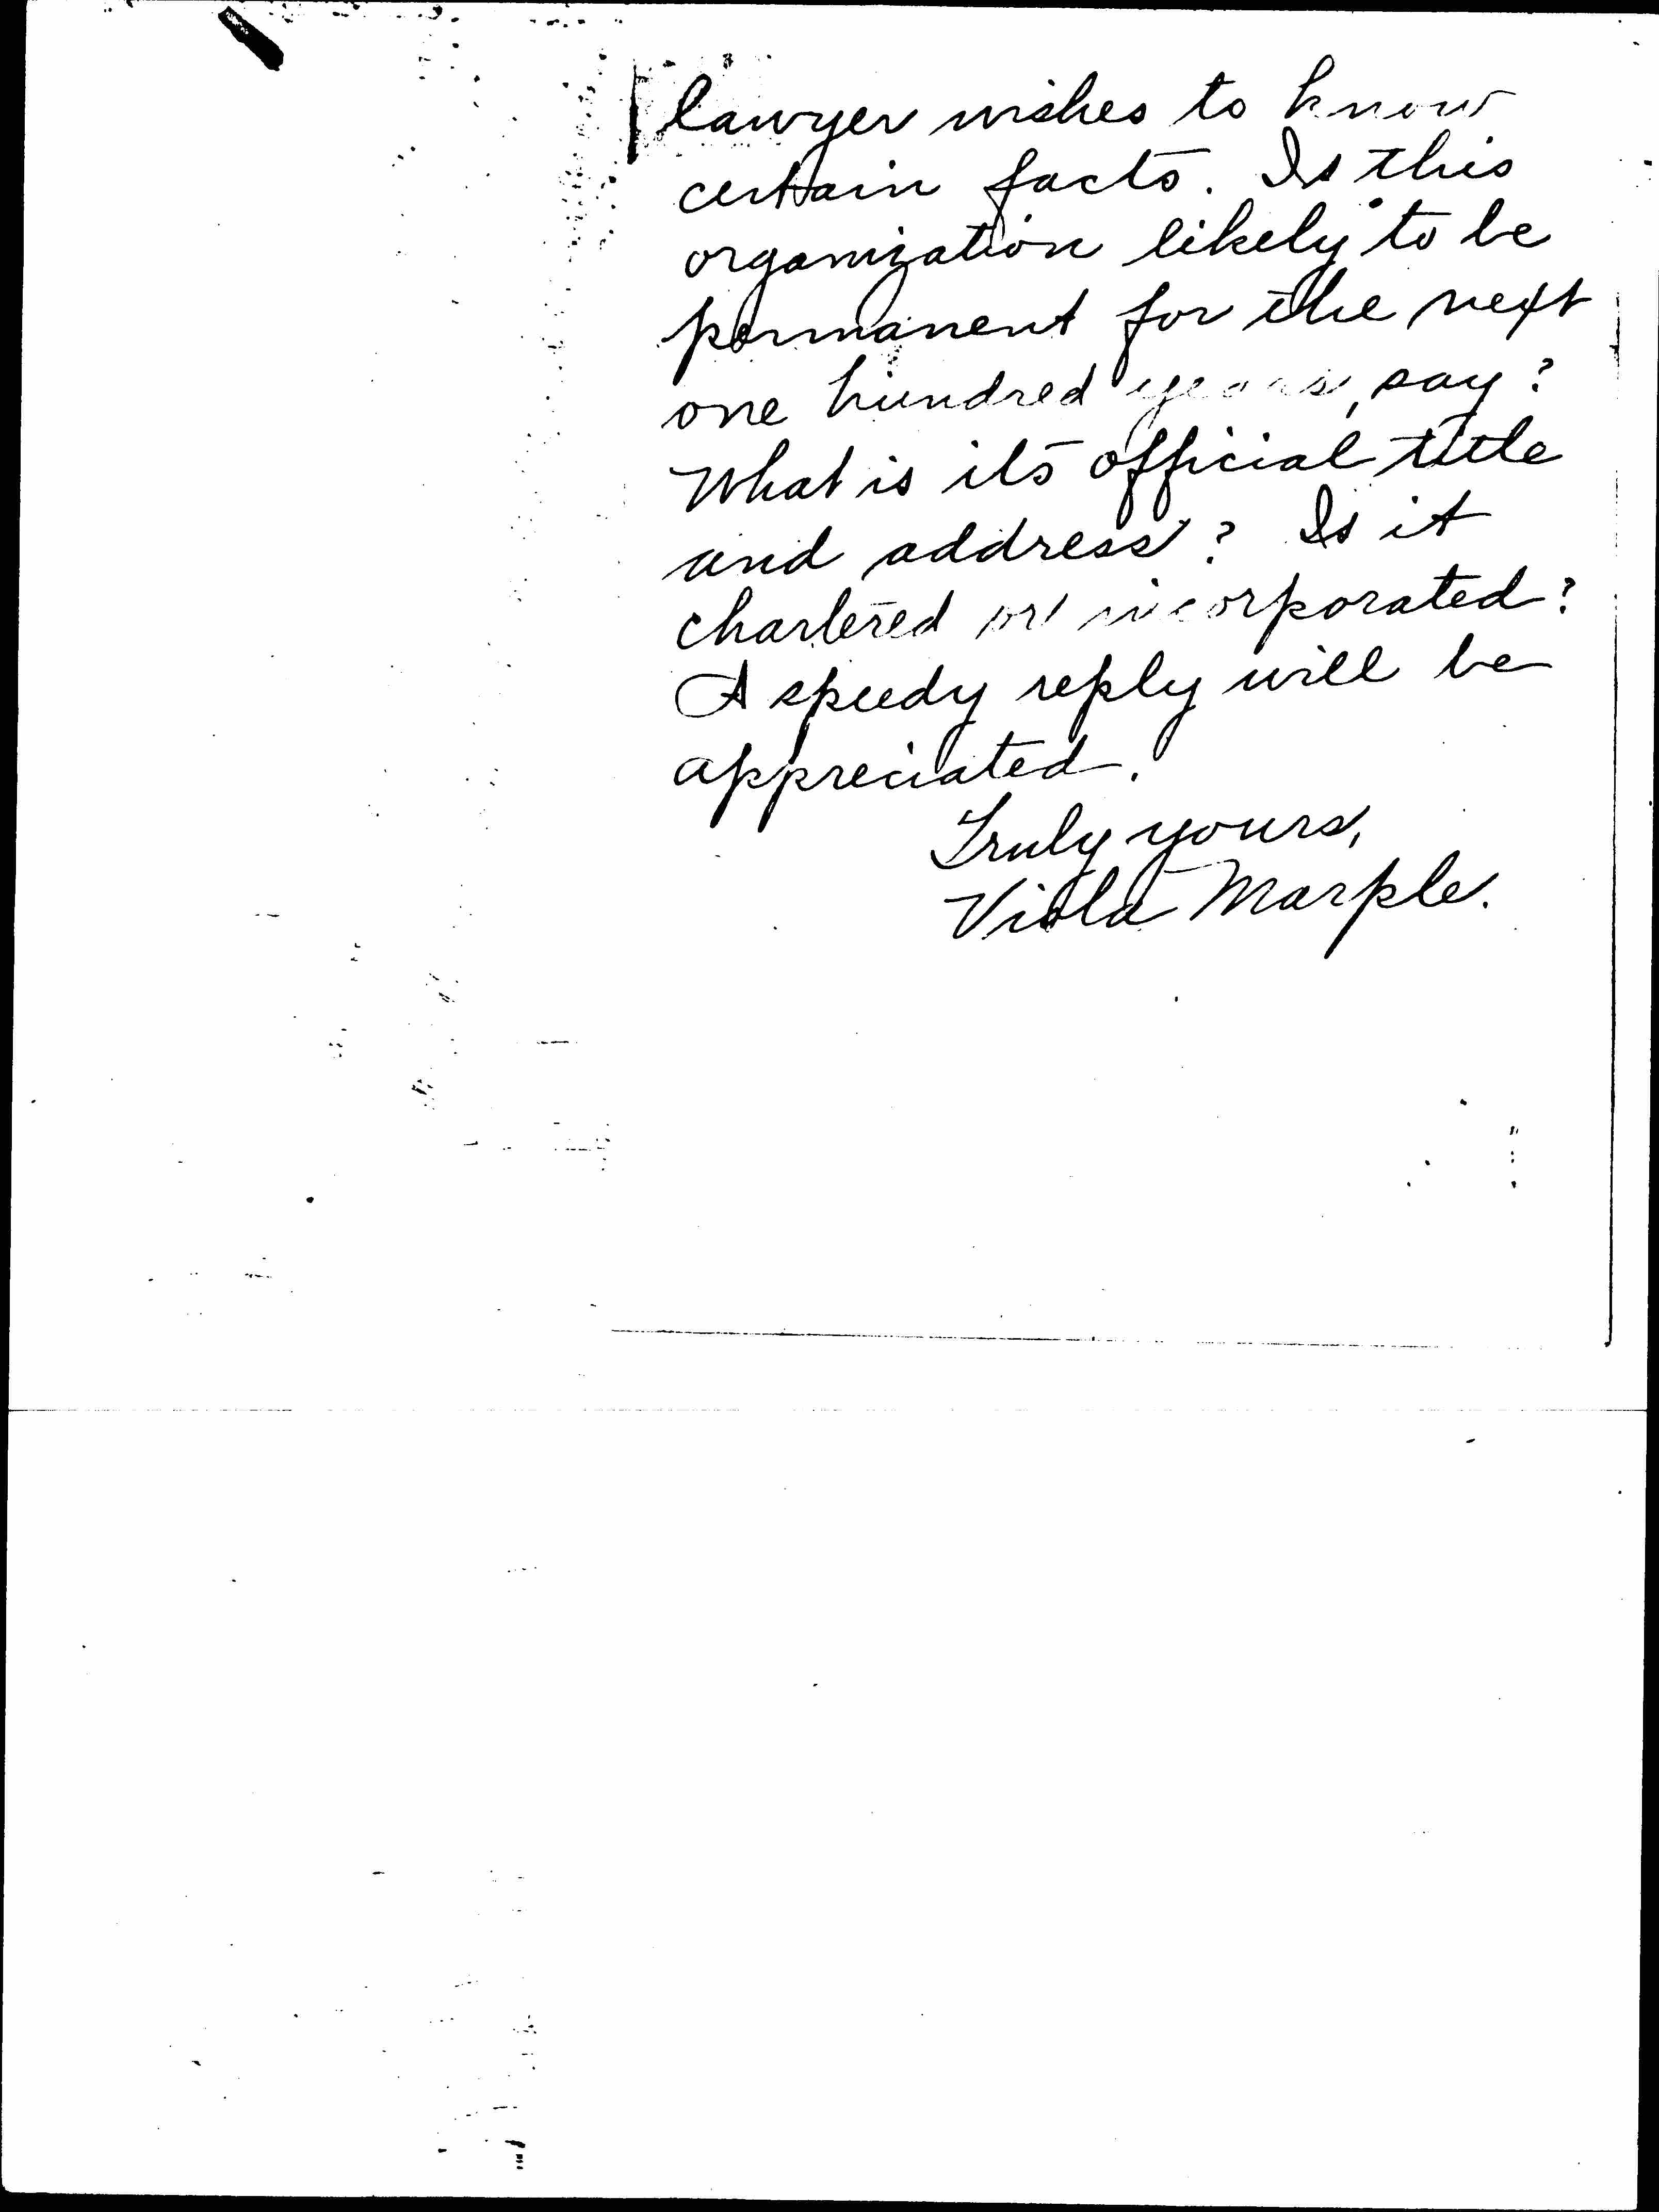 lawyer wishes to know
certain facts. Is this
organization likely to be
permanent for the next
one hundred years, say?
What is its official title
and address? Is it
chartered or incorporated?
A speedy reply will be
appreciated.
Truly yours,
Viola Marple.